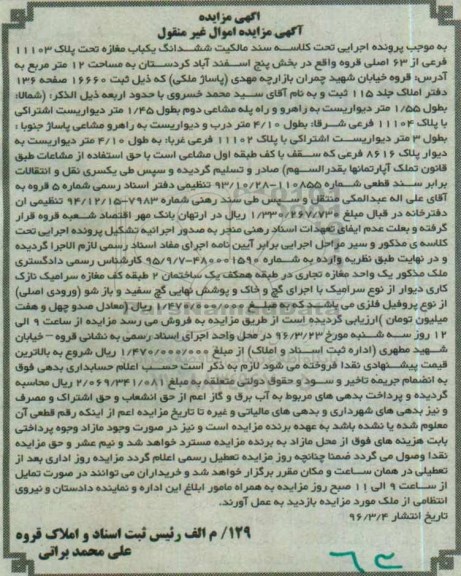 آگهی مزایده
آگهی مزایده اموال غیر منقول
به موجب پرونده اجرایی تحت کلاسه سند مالکیت ششدانگ یکباب مغازه تحت پلاک ۱۱۱۰۳
فرعی از ۶۳ اصلی قروه واقع در بخش پنج اسفند آباد کردستان به مساحت ۱۲ متر مربع به
آدرس: قروه خیابان شهید چمران بازارچه مهدی (پاساژ ملکی) که ذیل ثبت ۱۶۶۶۰ صفحه ۱۳۶
دفتر املاک جلد ۱۱۵ ثبت و به نام آقای سید محمد خسروی با حدود اربعه ذیل الذکر: (شمالا:
بطول ۱/۵۵ متر دیواریست به راهرو و راه پله مشاعی دوم بطول ۱/۴۵ متر دیواریست اشتراکی
با پلاک ۱۱۱۰۴ فرعی شرقا: بطول ۴/۱۰ متر درب و دیواریست به راهرو مشاعی پاساژ جنوبا :
بطول ۳ متر دیواریست اشتراکی با پلاک ۱۱۱۰۲ فرعی غربا: به طول ۴/۱۰ متر دیواریست به
دیوار پلاک ۸۶۱۶ فرعی که سقف با کف طبقه اول مشاعی است با حق استفاده از مشاعات طبق
قانون تملک آپارتمانها بقدرالسهم) صادر و تسلیم گردیده و سپس طی یکسری نقل و انتقالات
برابر سند قطعی شماره ۱۱۰۸۵۵-۹۳/۱۰/۲۸ تنظیمی دفتر اسناد رسمی شماره ۵ قروه به
آقای علی اله عبدالمکی منتقل و سپس طی سند رهنی شماره ۷۹۸۳-۹۴/۱۲/۱۵ تنظیمی ان
دفترخانه در قبال مبلغ ۱/۳۳۰/۲۶۷/۷۳۰ ریال در ارتهان بانک مهر اقتصاد شعبه قروه قرار
گرفته و بعلت عدم ایفای تعهدات اسناد رهنی منجر به صدور اجرائیه تشکیل پرونده اجرایی تحت
کلاسه ی مذکور و سیر مراحل اجرایی برابر آیین نامه اجرای مفاد اسناد رسمی لازم الاجرا گردیده
و در نهایت طبق نظریه وارده به شماره ۴۸۰۰۰۱۵۹۰-۹۵/۹/۷ کارشناس رسمی دادگستری
ملک مذکور یک واحد مغازه تجاری در طبقه همکف یک ساختمان ۲ طبقه کف مغازه سرامیک نازک
کاری دیوار از نوع سرامیک با اجرای گچ و خاک و پوشش نهایی گچ سفید و باز شو (ورودی اصلی)
از نوع پروفیل فلزی می باشد که به مبلغ ۱/۴۷۰/۰۰۰/۰۰۰ ریال (معادل صدو چهل و هفت
میلیون تومان )ارزیابی گردیده است از طریق مزایده به فروش می رسد مزایده از ساعت ۹ الی
۱۲ روز سه شنبه مورخ ۹۶/۳/۲۳ در محل واحد اجرای اسناد رسمی به نشانی قروه – خیابان
شهید مطهری (اداره ثبت اسناد و املاک) از مبلغ ۱/۴۷۰/۰۰۰/۰۰۰ ریال شروع به بالاترین
قیمت پیشنهادی نقدا فروخته می شود لازم به ذکر است حسب اعلام حسابداری بدهی فوق
به انضمام جریمه تاخیر و سود و حقوق دولتی متعلقه به مبلغ ۲/۰۶۹/۳۴۱/۰۸۱ ریال محاسبه
گردیده و پرداخت بدهی های مربوط به آب برق و گاز اعم از حق انشعاب و حق اشتراک و مصرف
و نیز بدهی های شهرداری و بدهی های مالیاتی و غیره تا تاریخ مزایده اعم از اینکه رقم قطعی آن
معلوم شده یا نشده باشد به عهده برنده مزایده است و نیز در صورت وجود مازاد وجوه پرداختی
بابت هزینه های فوق از محل مازاد به برنده مزایده مسترد خواهد شد و نیم عشر و حق مزایده
نقدا وصول می گردد ضمنا چنانچه روز مزایده تعطیل رسمی اعلام گردد مزایده روز اداری بعد از
تعطیلی در همان ساعت و مکان مقرر برگزار خواهد شد و خریداران می توانند در صورت تمایل
از ساعت ۹ الی ۱۱ صبح روز مزایده به همراه مامور ابلاغ این اداره و نماینده دادستان و نیروی
انتظامی از ملک مورد مزایده بازدید به عمل آورند.
تاریخ انتشار ۹۶/۳/۴
۱۲۹/ م الف رئیس ثبت اسناد و املاک قروه
علی محمد براتی